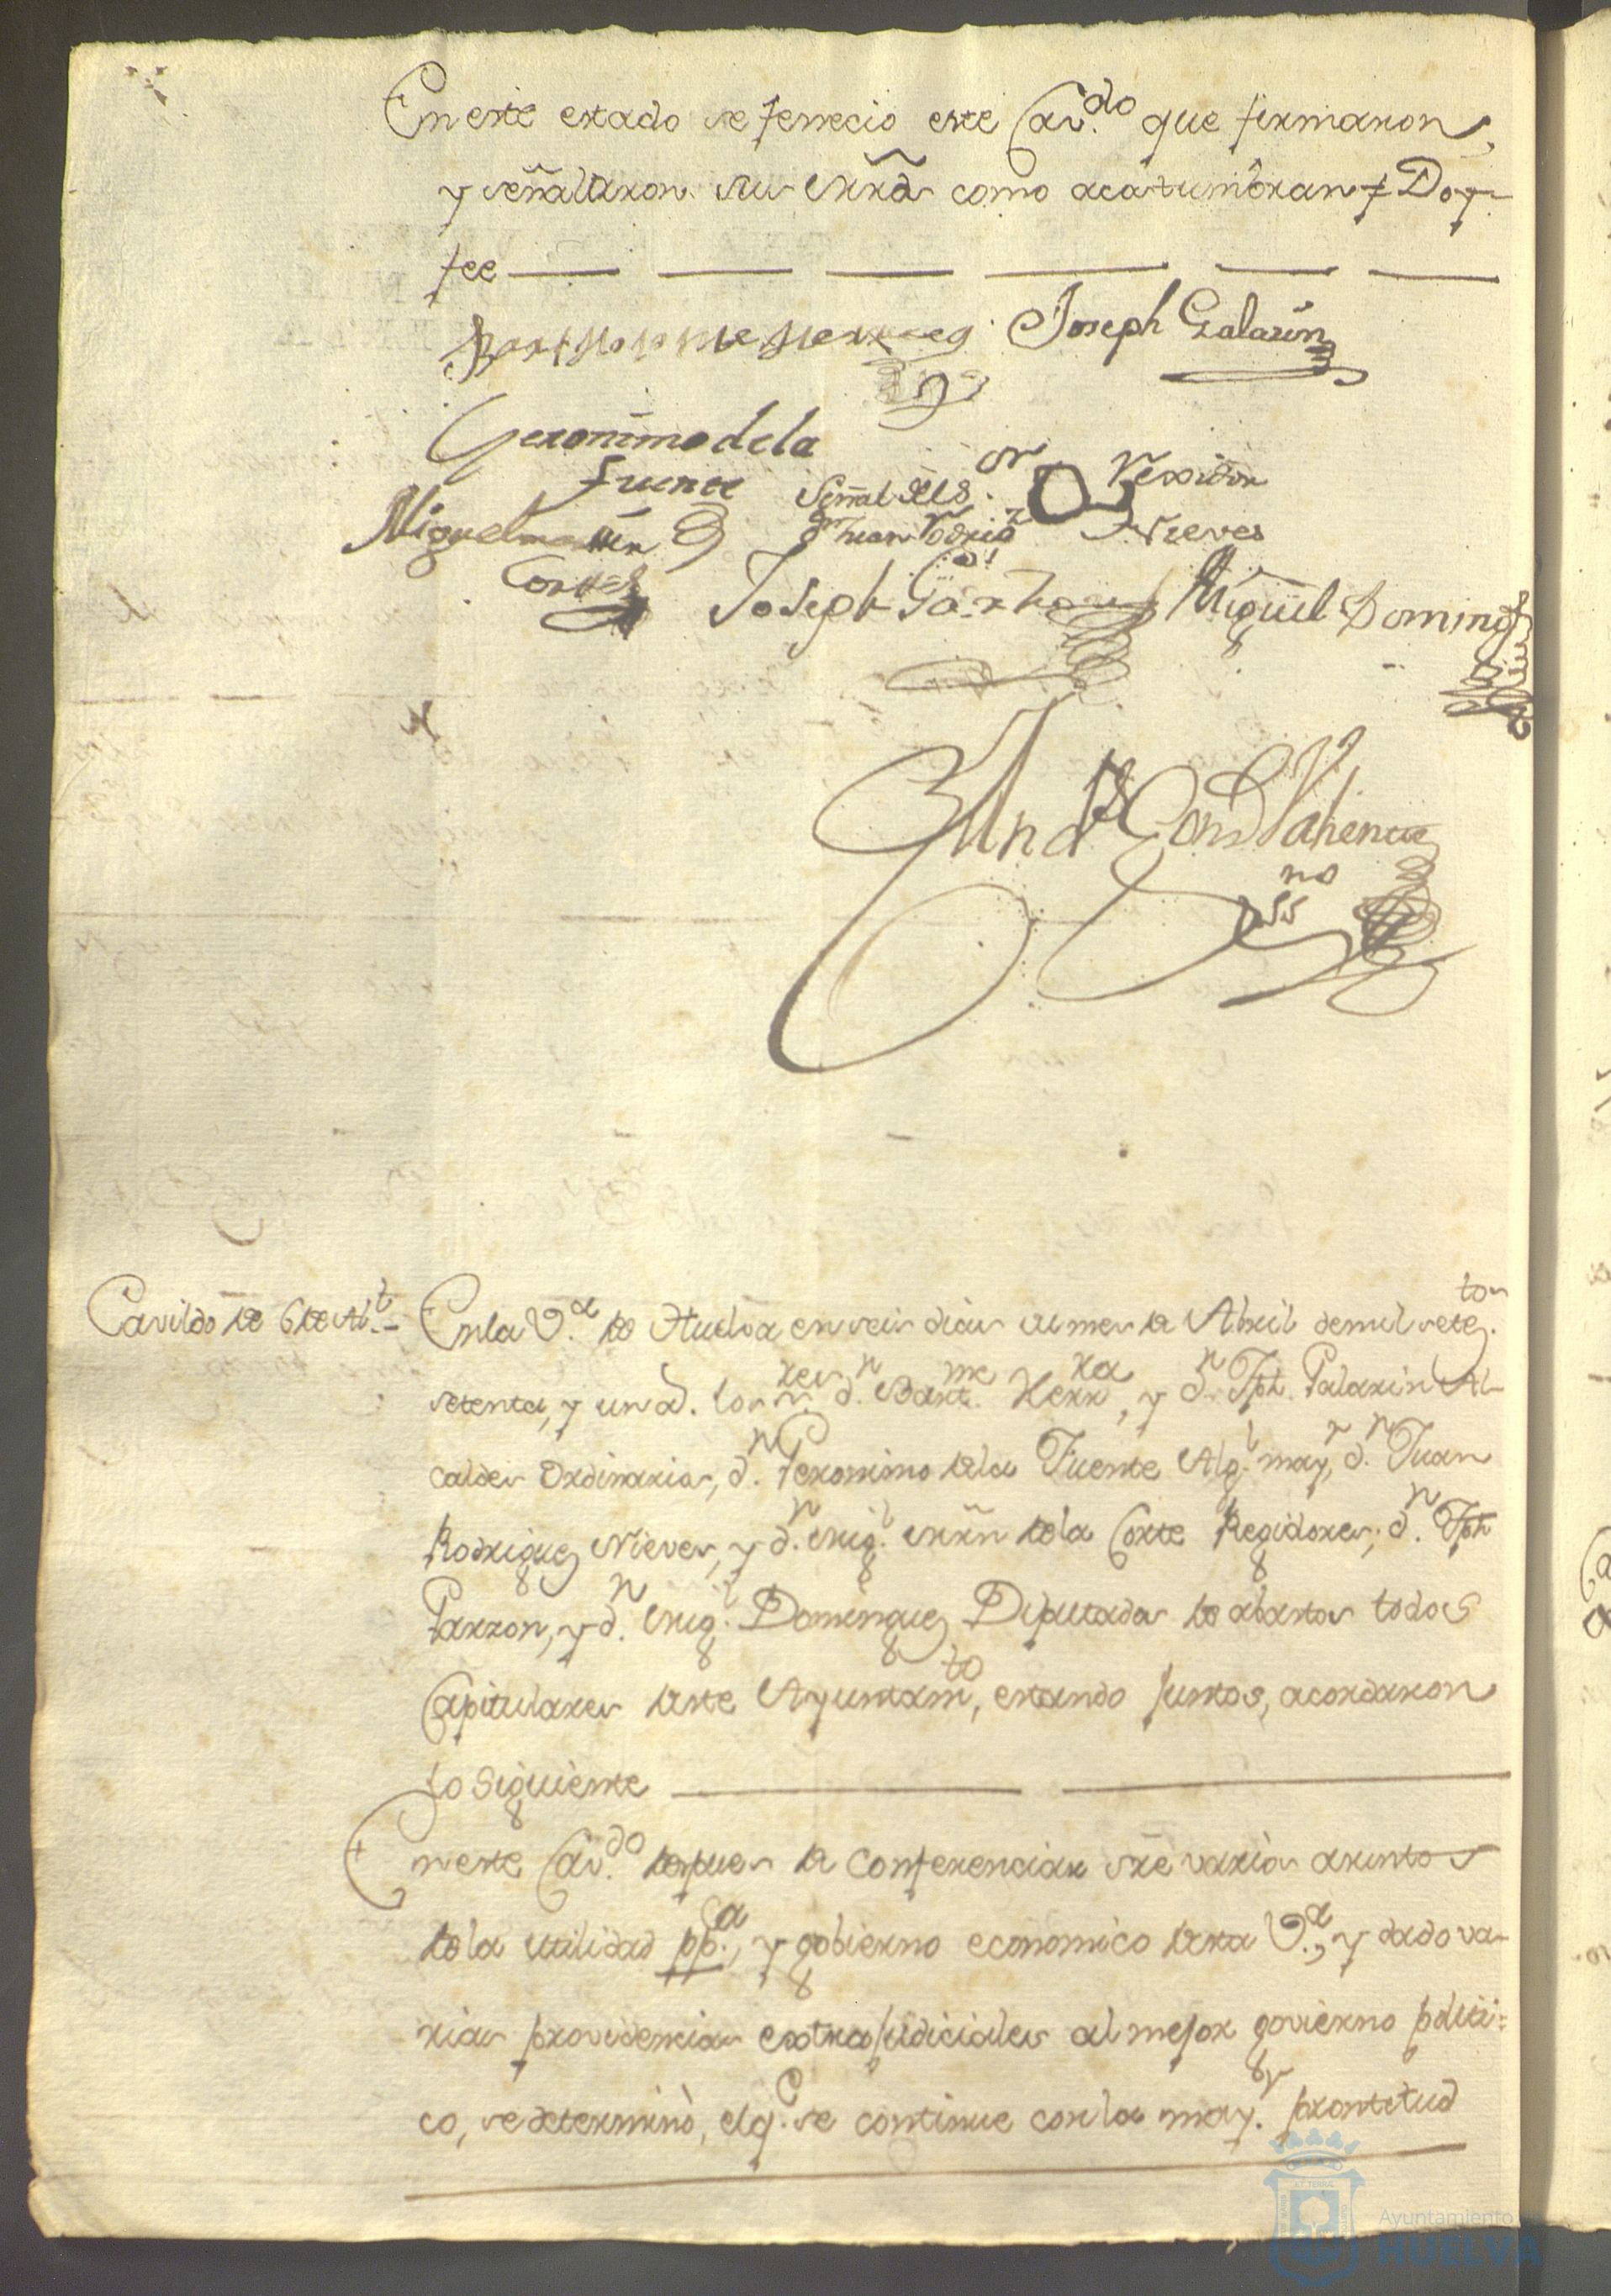 En este estado se fenecio este Cav.do que firmaron,
y señalaron sus mrds como acostumbran = Doy
fee
Bartholome Herrera Joseph Galarin
Geronimo de la
Fuente
Señal del s.or Rexidor
Juan Rodrig.z Nieves
Miguel Martin
Cortes
Joseph Garzon Miguel Doming.
Valiente
ss.no
Cavildo de 6 de Ab.l
En la V.a de Huelva en seis dias del mes de Abril de mil setez.tos
setenta, y un a. los s.res d.n Bart.me Herr.ra, y d.n Jph. Galarin Al-
caldes Ordinarios, d.n Geronimo de la Fuente Alg.l may.r, d.n Juan
Rodriguez Nieves, y d.n Mig.l Mrn de la Corte Regidores; d.n Jph
Garzon, y d.n Mig.l Dominguez Diputados de abastos todos
Capitulares deste Ayuntam.to, estando juntos, acordaron
lo siguiente
En este Cav.do despues de conferenciar sre varios asuntos
de la utilidad pp.ca, y gobierno economico desta V.a, y dado va-
rias providencias extrajudiciales al mejor govierno politi=
co, se determinò, el q.e se continue con la may.r prontitud
Ayuntamiento
HUELVA